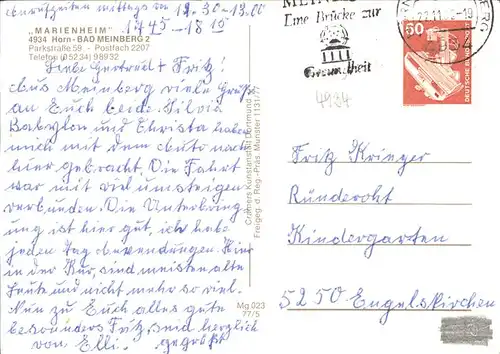 Anrufzeiten mittags v. 12.30-13.00
17.45-18.15
„MARIENHEIM"
4934 Horn-BAD MEINBERG 2
Parkstraße 59 - Postfach 2207
Telefon (05234) 98932
Liebe Gertraud + Fritz!
Aus Meinberg viele Grüße
an Euch beide. Silvia
Babylon und Christa haben
mich mit dem Auto nach
hier gebracht. Die Fahrt
war mit viel umsteigen
verbunden. Die Unterbring
ung ist hier gut, ich habe
jeden Tag Anwendungen. Hier
in der Kur, sind meisten alte
Leute und nicht mehr so viel.
Nun zu Euch alles gute
besonders Fritz, seid herzlich
von Elli. gegrüßt
Cramers Kunstanstalt Dortmund
Freigeg. d. Reg.-Präs. Münster
Mg 023
77/5
MEINBERG
Eine Brücke zur
Gesundheit
4934
22.11
50
DEUTSCHE BUNDESPOST
Fritz Krieger
Ründeroht
Kindergarten
5250 Engelskirchen